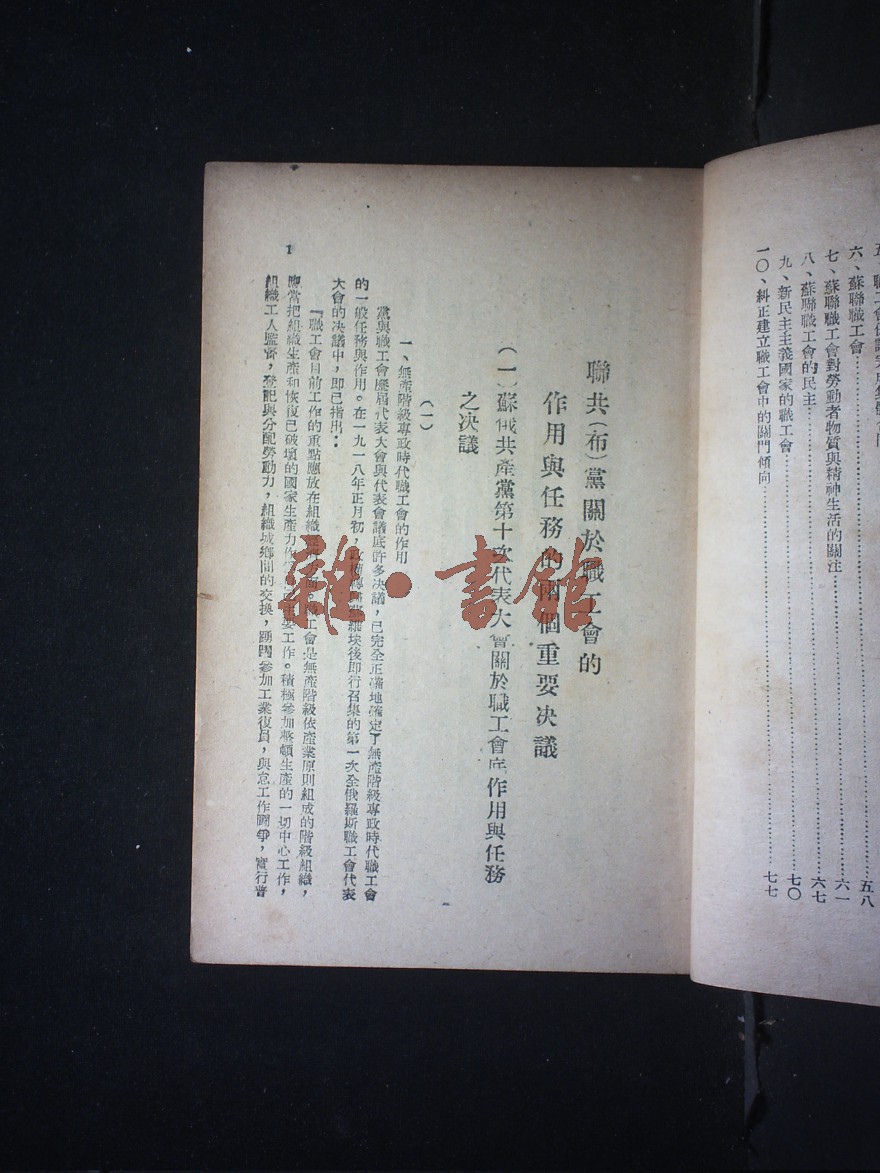 五、職工會
六、蘇聯職工會……五八
七、蘇聯職工會對勞動者物質與精神生活的關注……六一
八、蘇聯職工會的民主……六七
九、新民主主義國家的職工會……七〇
一〇、糾正建立職工會中的關門傾向……七七
聯共(布)黨關於職工會的
作用與任務的兩個重要決議
(一)蘇俄共產黨第十次代表大會關於職工會底作用與任務
之決議
(一)
一、無產階級專政時代職工會的作用
黨與職工會歷屆代表大會與代表會議底許多決議,已完全正確地確定了無產階級專政時代職工會
的一般任務與作用。在一九一八年正月初,政權轉歸蘇維埃後即行召集的第一次全俄羅斯職工會代表
大會的決議中,即已指出:
『職工會目前工作的重點應放在組織 職工會是無產階級依產業原則組成的階級組織,
應當把組織生產和恢復已破壞的國家生產力作 主要工作。積極參加整頓生產的一切中心工作,
組織工人監督,登記與分配勞動力,組織城鄉間的交換,踴躍參加工業復員,與怠工作鬪爭,實行普
1
雜·書館